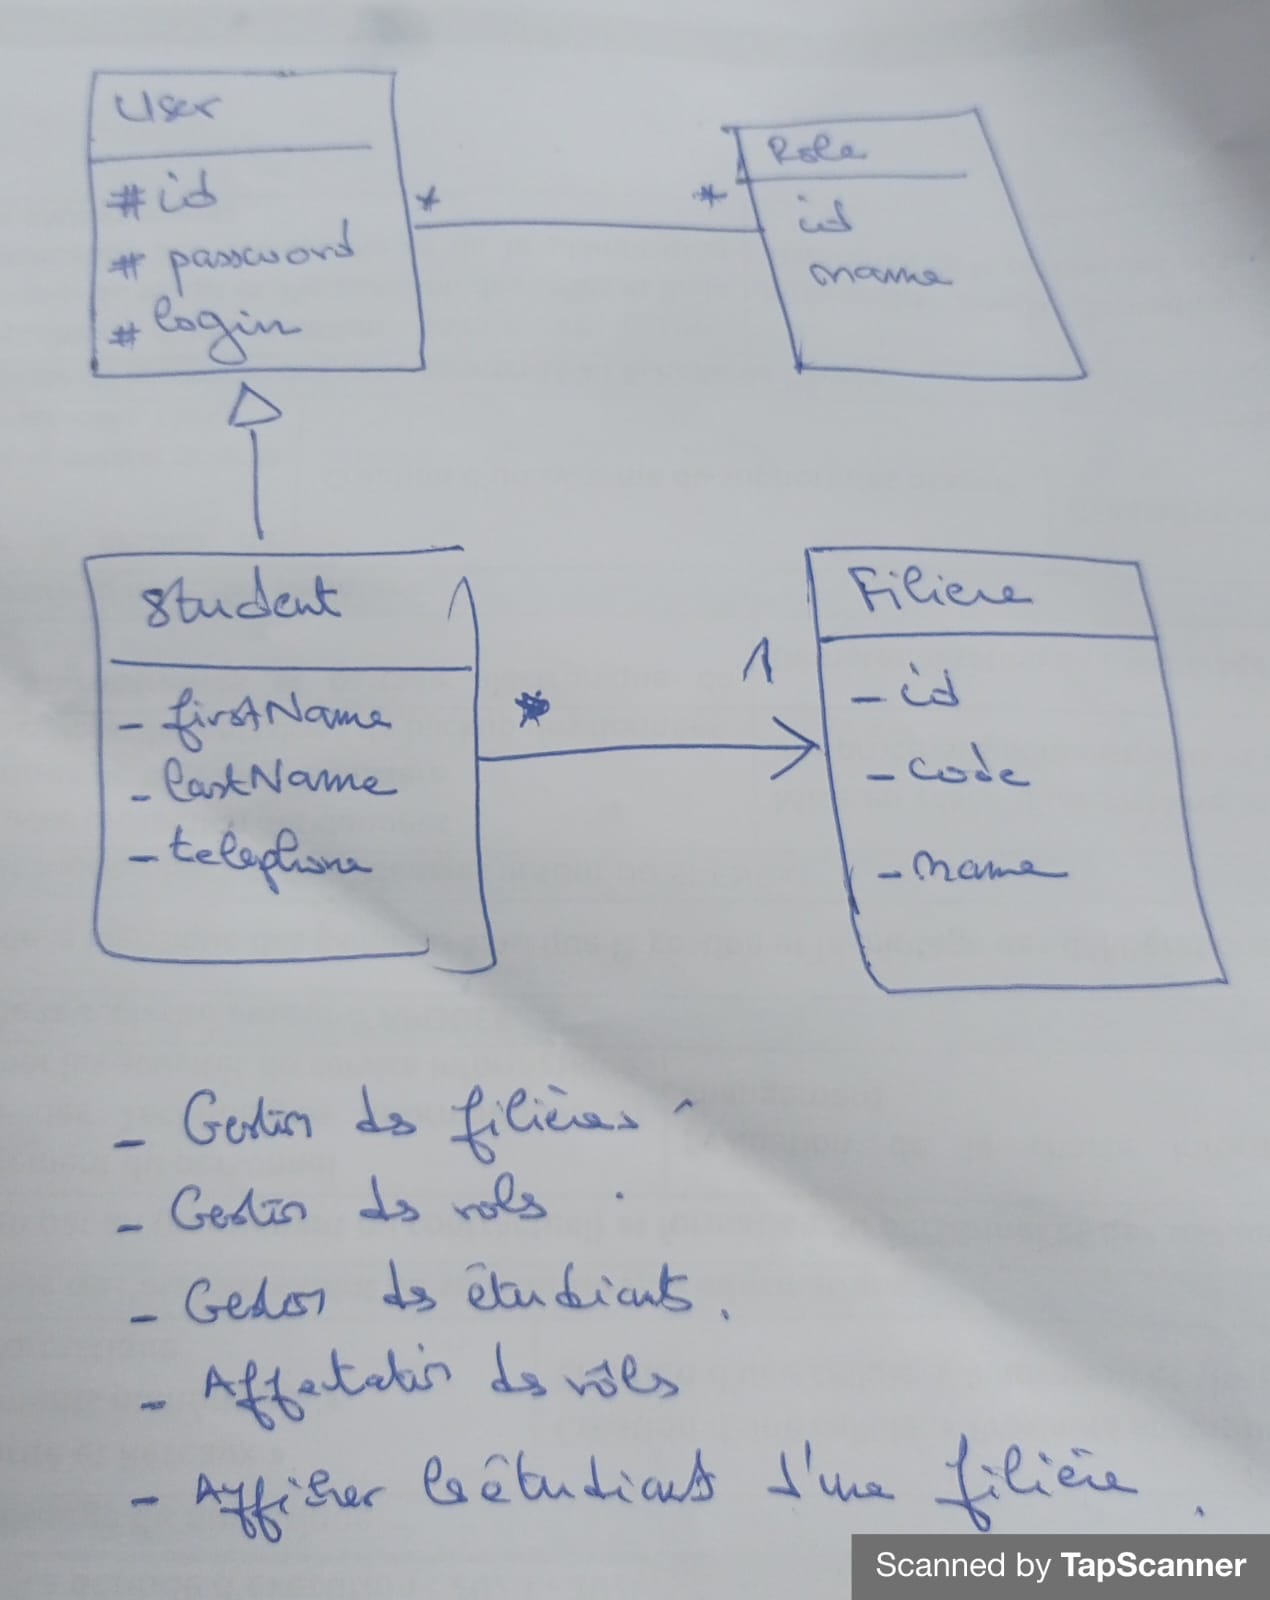 User
# id
# password
# login
* *
Role
id
name
Student
- firstName
- lastName
- telephone
* 1
Filiere
- id
- code
- name
- Gestion des filières
- Gestion des rols.
- Gestion des étudiants.
- Affectation des rôles
- Afficher les étudiants d'une filière.
Scanned by TapScanner